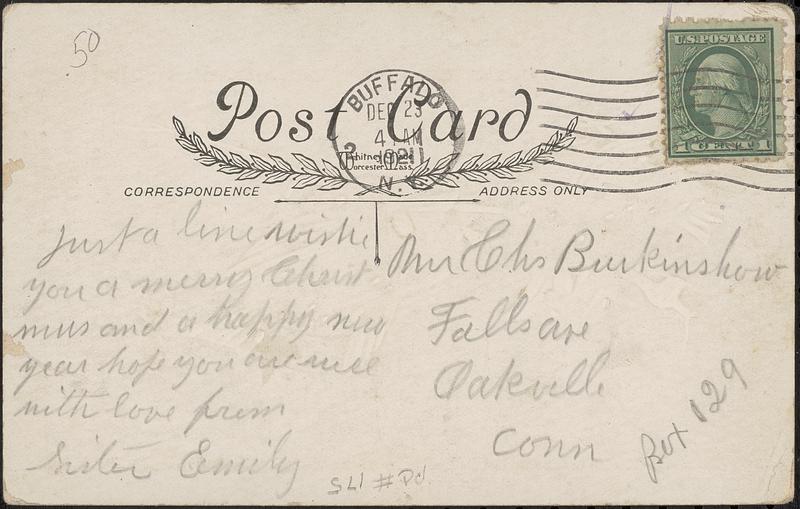 50
U.S.POSTAGE
1 CENT 1
BUFFALO
DEC 23
4 AM
1921
2
N.Y.
Post Card
Whitney Made
Worcester, Mass.
CORRESPONDENCE
ADDRESS ONLY
Just a line wishie
you a merry Christ
mus and a happy new
year hope you are well
with love from
Sister Emily
Mr Chs Burkinshow
Falls ave
Oakville
Conn
Box 129